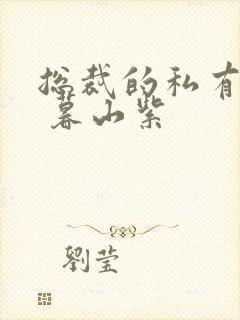 总裁的私有
暮山紫
劉莹